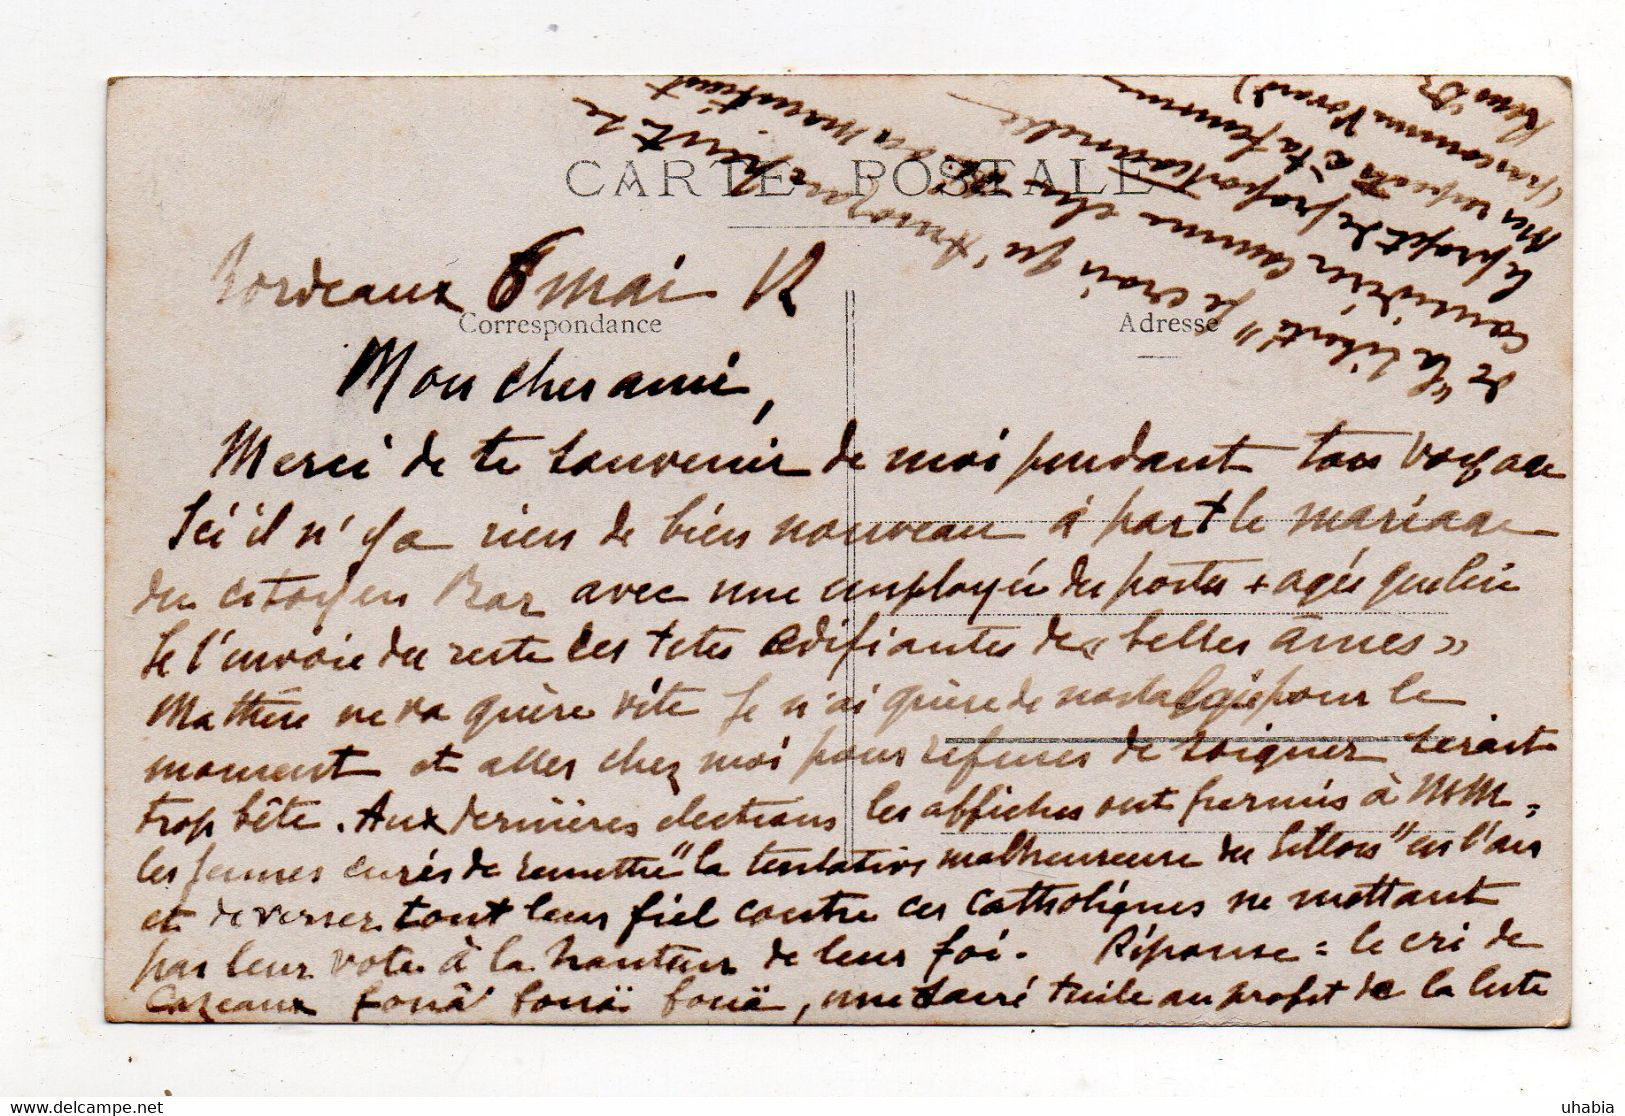 CARTE POSTALE
Correspondance
Adresse
Bordeaux 6 mai 12
Mon cher ami,
Merci de te souvenir de moi pendant ton voyage
Ici il n'y a rien de bien nouveau à part le mariage
du citoyen Bar avec une employée des postes + agée que lui
Je t'envoie du reste des têtes édifiantes de « belles âmes »
Ma thèse ne va guère vite Je n'ai guère de nostalgie pour le
moment et aller chez moi pour refuser de soigner serait
trop bête. Aux dernières élections les affiches ont permis à MM.
les jeunes curés de remettre "la tentative malheureuse du Sillon" en l'air
et de verser tout leur fiel contre ces Catholiques ne mettant
pas leur vote à la hauteur de leur foi. Réponse = le cri de
Cazeaux fouâ fouä fouä, une sacré tuile au profit de la liste
de "la liberté" Je crois qu'
considérer comme
le projet de proportionnelle
Mes respects à ta femme
(franc comme Vorard)